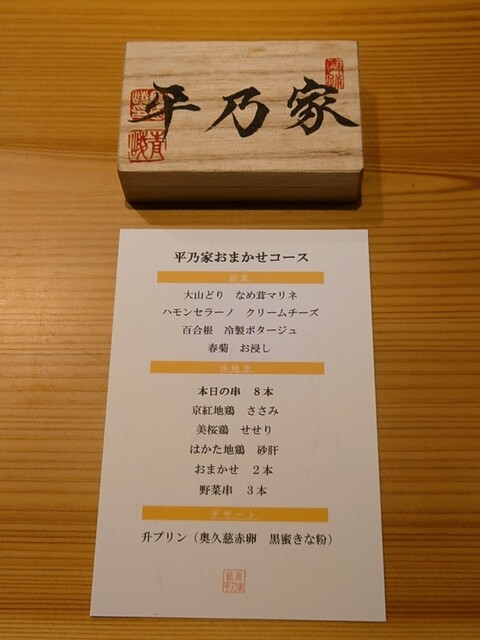 平乃家
平乃家おまかせコース
前菜
大山どり　なめ茸マリネ
ハモンセラーノ　クリームチーズ
百合根　冷製ポタージュ
春菊　お浸し
串焼き
本日の串　８本
京紅地鶏　ささみ
美桜鶏　せせり
はかた地鶏　砂肝
おまかせ　２本
野菜串　３本
デザート
升プリン（奥久慈赤卵　黒蜜きな粉）